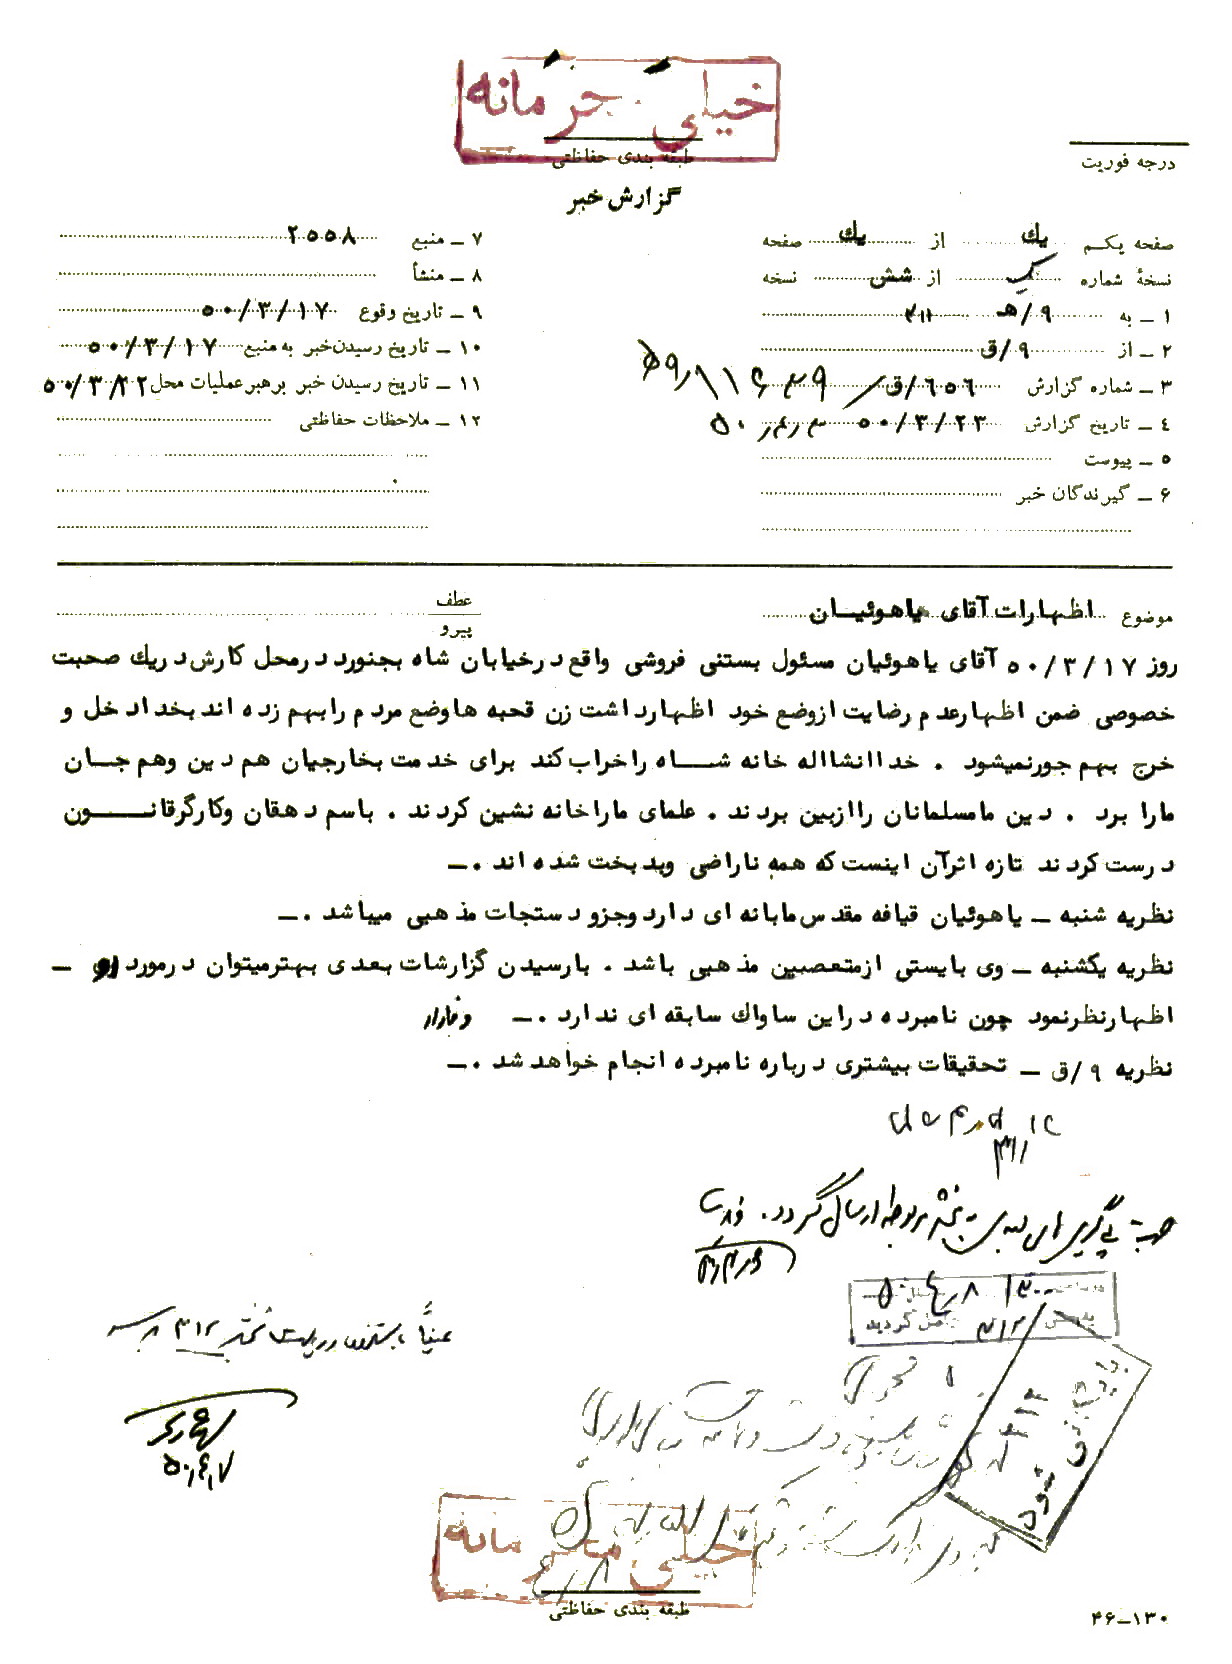 خیلی محرمانه
طبقه بندی حفاظتی
درجه فوریت
گزارش خبر
صفحه یکم یك از یك صفحه
نسخهٔ شماره از شش نسخه
۱ ـ به ۹/هـ ۳۱۱
۲ ـ از ۹/ق
۳ ـ شماره گزارش ۶۵۶/ق
٤ ـ تاریخ گزارش ۵۰/۳/۲۳
۵ ـ پیوست
۶ ـ گیرندگان خبر
۷ ـ منبع ۲۵۵۸
۸ ـ منشأ
۹ ـ تاریخ وقوع ۵۰/۳/۱۷
۱۰ ـ تاریخ رسیدن خبر به منبع ۵۰/۳/۱۷
۱۱ ـ تاریخ رسیدن خبر برهبر عملیات محل ۵۰/۳/۲۲
۱۲ ـ ملاحظات حفاظتی
موضوع اظهارات آقای یاهوئیان
عطف
پیرو
روز ۵۰/۳/۱۷ آقای یاهوئیان مسئول بستنی فروشی واقع در خیابان شاه بجنورد در محل کارش در یك صحبت
خصوصی ضمن اظهار عدم رضایت از وضع خود اظهار داشت زن قحبه ها وضع مردم را بهم زده اند بخدا دخل و
خرج بهم جور نمیشود . خدا انشااله خانه شاه را خراب کند برای خدمت بخارجیان هم دین وهم جان
مارا برد . دین ما مسلمانان را ازبین بردند . علمای مارا خانه نشین کردند . باسم دهقان وکارگر قانون
درست کردند تازه اثرآن اینست که همه ناراضی وبدبخت شده اند .ـ
نظریه شنبه ـ یاهوئیان قیافه مقدس مابانه ای دارد وجزو دستجات مذهبی میباشد .ـ
نظریه یکشنبه ـ وی بایستی ازمتعصبین مذهبی باشد . با رسیدن گزارشات بعدی بهتر میتوان در مورد او ـ
اظهارنظر نمود چون نامبرده در این ساواك سابقه ای ندارد .ـ وفادار
نظریه ۹/ق ـ تحقیقات بیشتری درباره نامبرده انجام خواهد شد .ـ
۳۱۱
ارسال گردد .
۳۱۲
حاصل گردید
عیناً
۳۱۲
بایگانی شود
۵۰/۴/۷
خیلی محرمانه
طبقه بندی حفاظتی
۱۳۰-۴۶